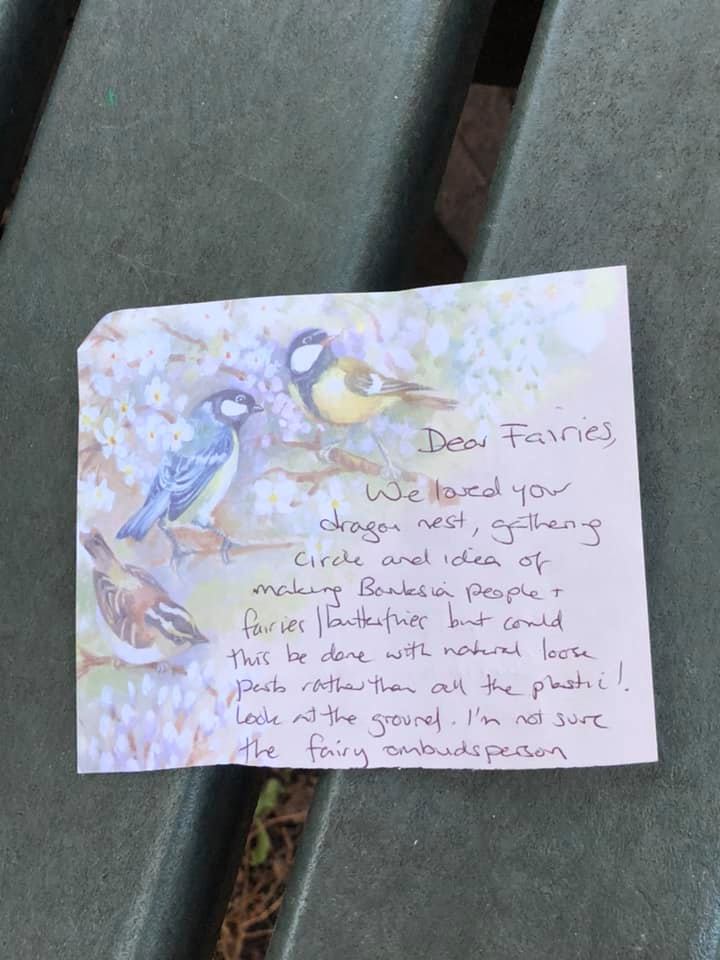 Dear Fairies,
We loved your
dragon nest, gathering
circle and idea of
making Banksia people +
fairies/butterflies but could
this be done with natural loose
parts rather than all the plastic!
Look at the ground. I'm not sure
the fairy ombudsperson